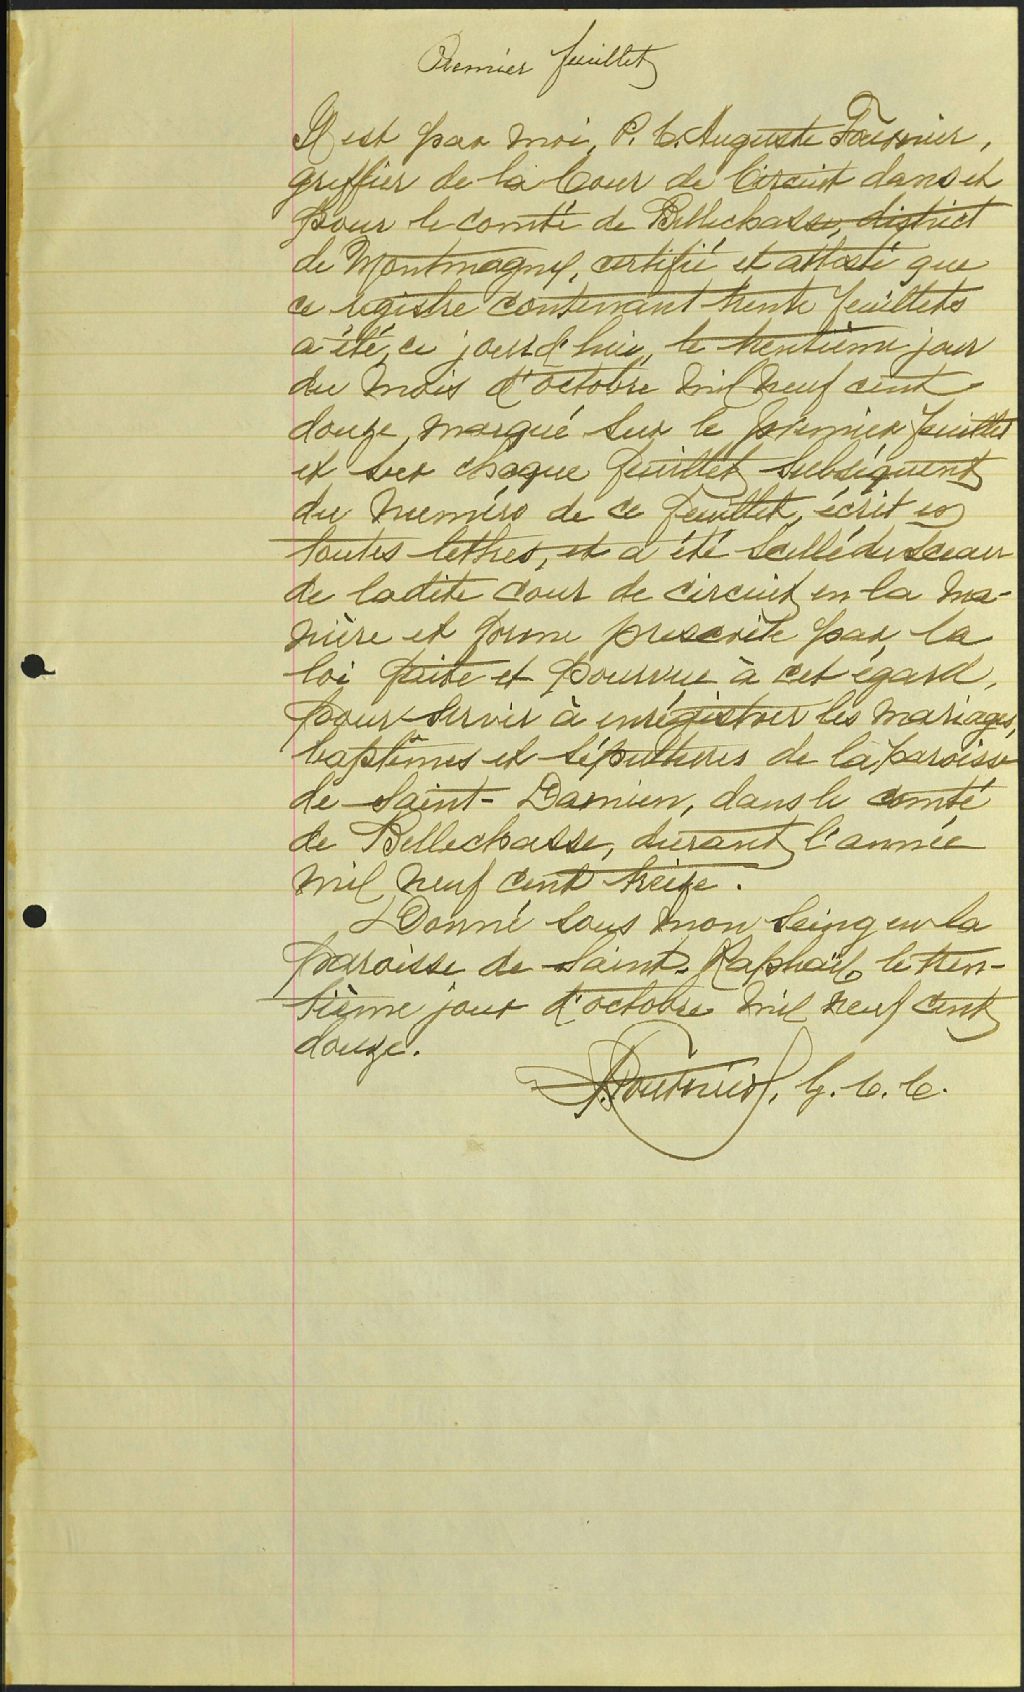 Premier feuillet
Il est par moi, P. C. Auguste Fournier,
greffier de la Cour de Circuit dans et
pour le comté de Bellechasse, district
de Montmagny, certifié et attesté que
ce registre contenant trente feuillets
a été, ce jourd'hui, le trentième jour
du mois d'octobre mil neuf cent
douze, marqué sur le premier feuillet
et sur chaque feuillet subséquent
du numéro de ce feuillet, écrit en
toutes lettres, et a été scellé du sceau
de ladite cour de circuit, en la ma-
nière et forme prescrite par la
loi faite et pourvue à cet égard,
pour servir à enrégistrer les mariages,
baptêmes et sépultures de la paroisse
de Saint-Damien, dans le comté
de Bellechasse, durant l'année
mil neuf cent treize.
Donné sous mon seing en la
paroisse de Saint-Raphaël, le tren-
tième jour d'octobre mil neuf cent
douze.
A. Fournier, G. C. C.